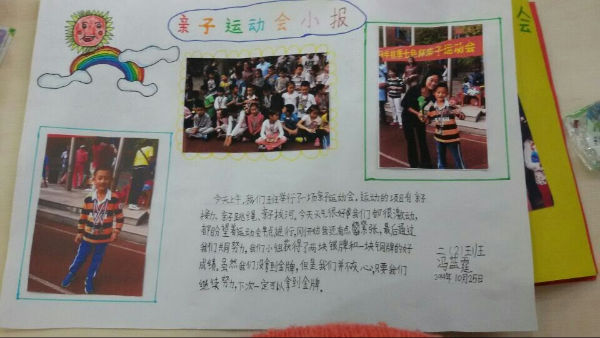 亲子运动会小报
会
亲子运动会
今天上午,我们班举行了一场亲子运动会。运动的项目有亲子
接力、亲子跳绳、亲子拔河。今天天气很好,我们都很激动,
都盼望着运动会早点进行。刚开始我还有点紧张,最后通过
我们共同努力,我们小组获得了两块银牌和一块铜牌的好
成绩。虽然我们没拿到金牌,但是,我们并不灰心,只要我们
继续努力,下次一定可以拿到金牌。
二(2)班
10月25日